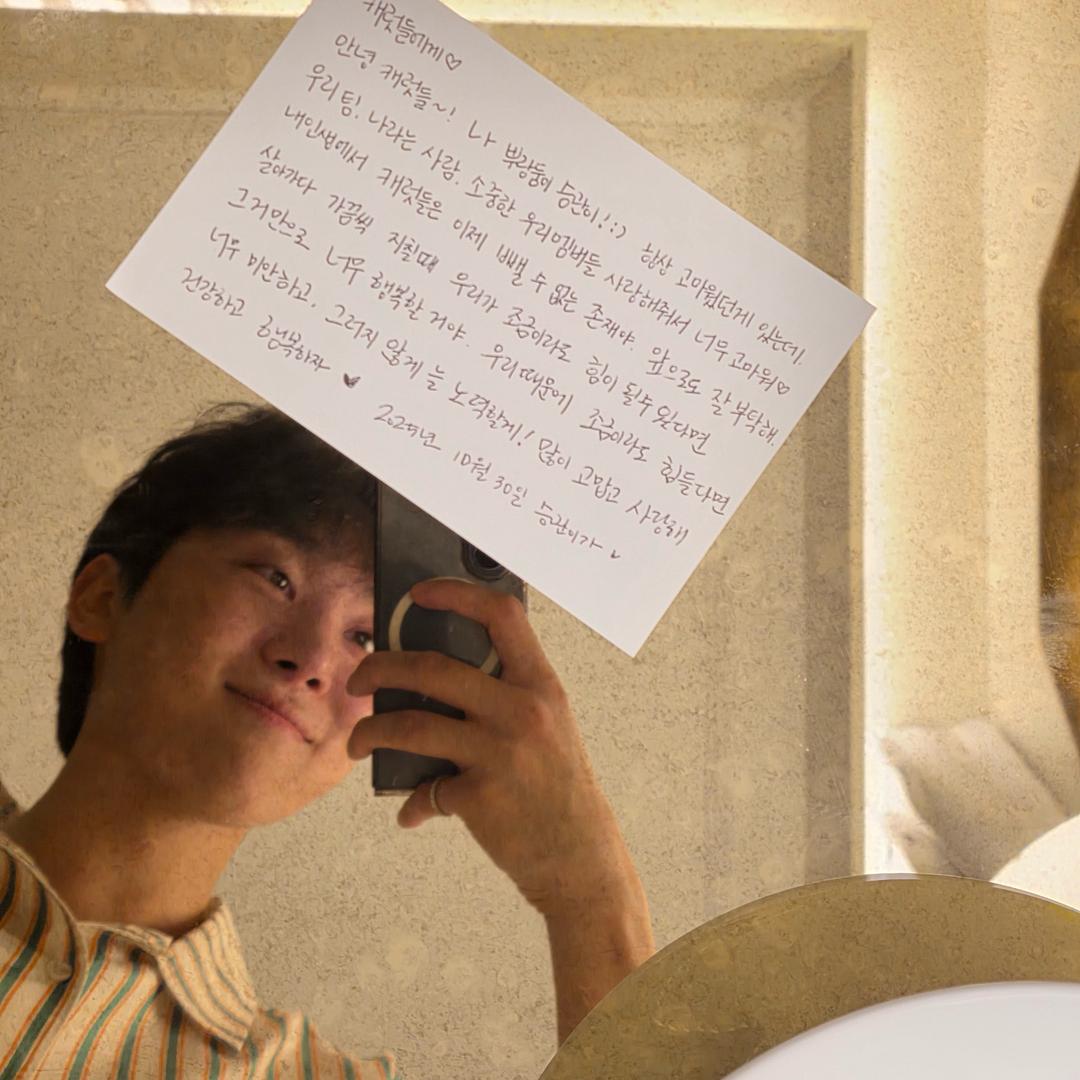 캐럿들에게♡
안녕 캐럿들~! 나 뿌랑둥이 승관이!:) 항상 고마웠던게 있는데,
우리팀, 나라는 사람, 소중한 우리멤버들 사랑해줘서 너무 고마워♡
내인생에서 캐럿들은 이제 뺄 수 없는 존재야. 앞으로도 잘 부탁해.
살아가다 가끔씩 지칠때 우리가 조금이라도 힘이 될수 있다면
그거만으로 너무 행복할 거야. 우리때문에 조금이라도 힘들다면
너무 미안하고, 그러지 않게 늘 노력할게! 많이 고맙고 사랑해
건강하고 행복하자 ♥
2025년 10월 30일 승관이가